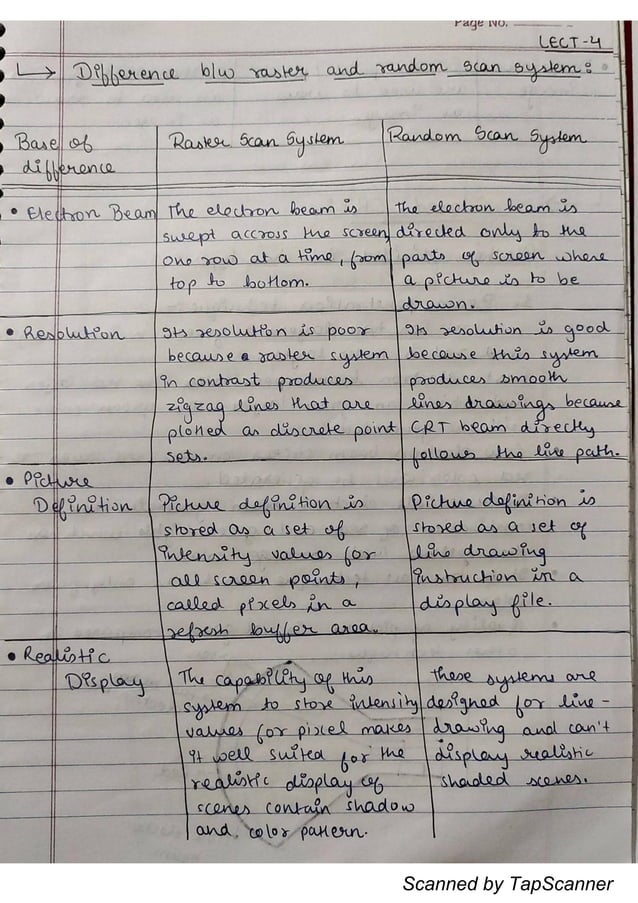 Page No.
LECT-4
↳ Difference b/w raster and random scan system:
Base of difference
Raster Scan System
Random Scan System
• Electron Beam
The electron beam is
swept accross the screen,
one row at a time, from
top to bottom.
The electron beam is
directed only to the
parts of screen where
a picture is to be
drawn.
• Resolution
Its resolution is poor
because raster system
in contrast produces
zigzag lines that are
plotted as discrete point
sets.
Its resolution is good
because this system
produces smooth
lines drawings because
CRT beam directly
follows the line path.
• Picture
Definition
Picture definition is
stored as a set of
intensity values for
all screen points,
called pixels in a
refresh buffer area.
Picture definition is
stored as a set of
line drawing
instruction in a
display file.
• Realistic
Display
The capability of this
system to store intensity
values for pixel makes
it well suited for the
realistic display of
scenes contain shadow
and color pattern.
These systems are
designed for line-
drawing and can't
display realistic
shaded scenes.
Scanned by TapScanner